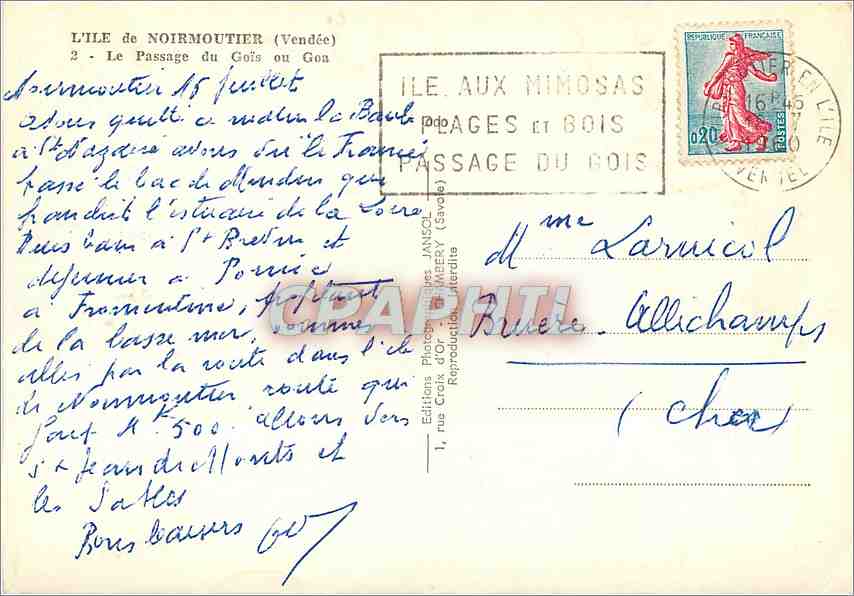 L'ILE de NOIRMOUTIER (Vendée)
2 - Le Passage du Goïs ou Goa
Noirmoutier 15 juillet
avons quitté ce matin la Baule
à St Nazaire avons vu le France
passé le bac de Mindin qui
franchit l'estuaire de la Loire
Puis bain à St Brevin et
déjeuner à Pornic
à Fromentine, profitant
de la basse mer, sommes
allés par la route dans l'ile
de Noirmoutier route qui
fait 4 K 500. allons vers
St Jean de Monts et
les Sables
Bons baisers
ILE AUX MIMOSAS
PLAGES ET BOIS
PASSAGE DU GOIS
REPUBLIQUE FRANÇAISE
0,20
POSTES
16H45
EN L'ILE
VENDEE
Editions Photographiques JANSOL
1, rue Croix d'Or - CHAMBERY (Savoie)
Reproduction interdite
CPAPHIL
Mme Larnicol
Bruère-Allichamps
(Cher)